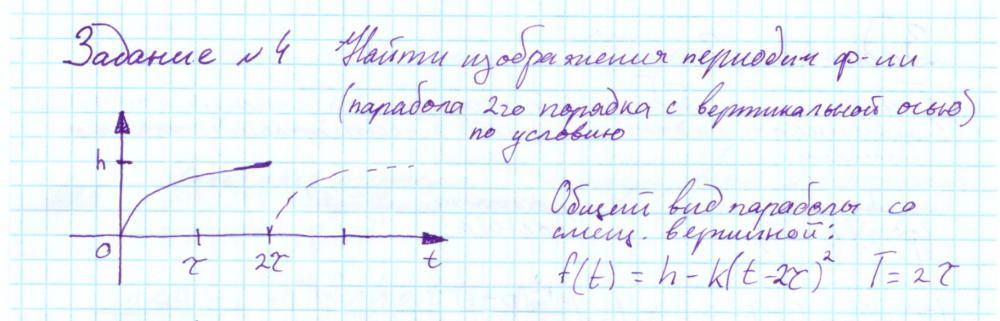 Задание №4 Найти изображения периодич ф-ии
(парабола 2го порядка с вертикальной осью)
по условию
h
Общий вид параболы со
смещ. вершиной:
0 τ 2τ t
f(t) = h - k(t-2τ)² T = 2τ